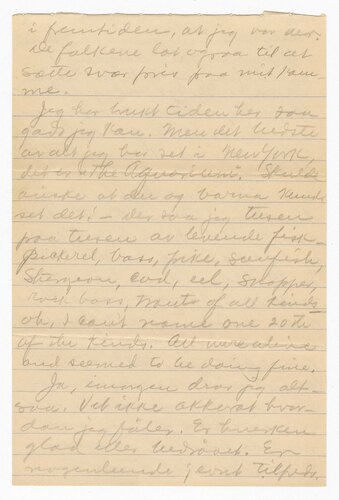 i fremtiden, at jeg var der.
De folkene lot være til at
sætte stor pris paa mit kom-
me.
Jeg har brukt tiden her saa
godt jeg kan. Men det bedste
av alt jeg har set i New York,
det er "The Aquarium". Skulde
ønske at du og barna kunde
set det! — Der saa jeg tusen
paa tusen av levende fisk —
Pickerel, bass, pike, sunfish,
Sturgeon, cod, eel, snapper,
rock bass, trouts of all kinds —
oh, I can't name one 20th
of the kinds. All were alive
and seemed to be doing fine.
Ja, imorgen drar jeg alt-
saa. Vet ikke akkurat hvor-
dan jeg føler. Er hverken
glad eller bedrøvet. Er
nogenlunde; svart tilfreds.